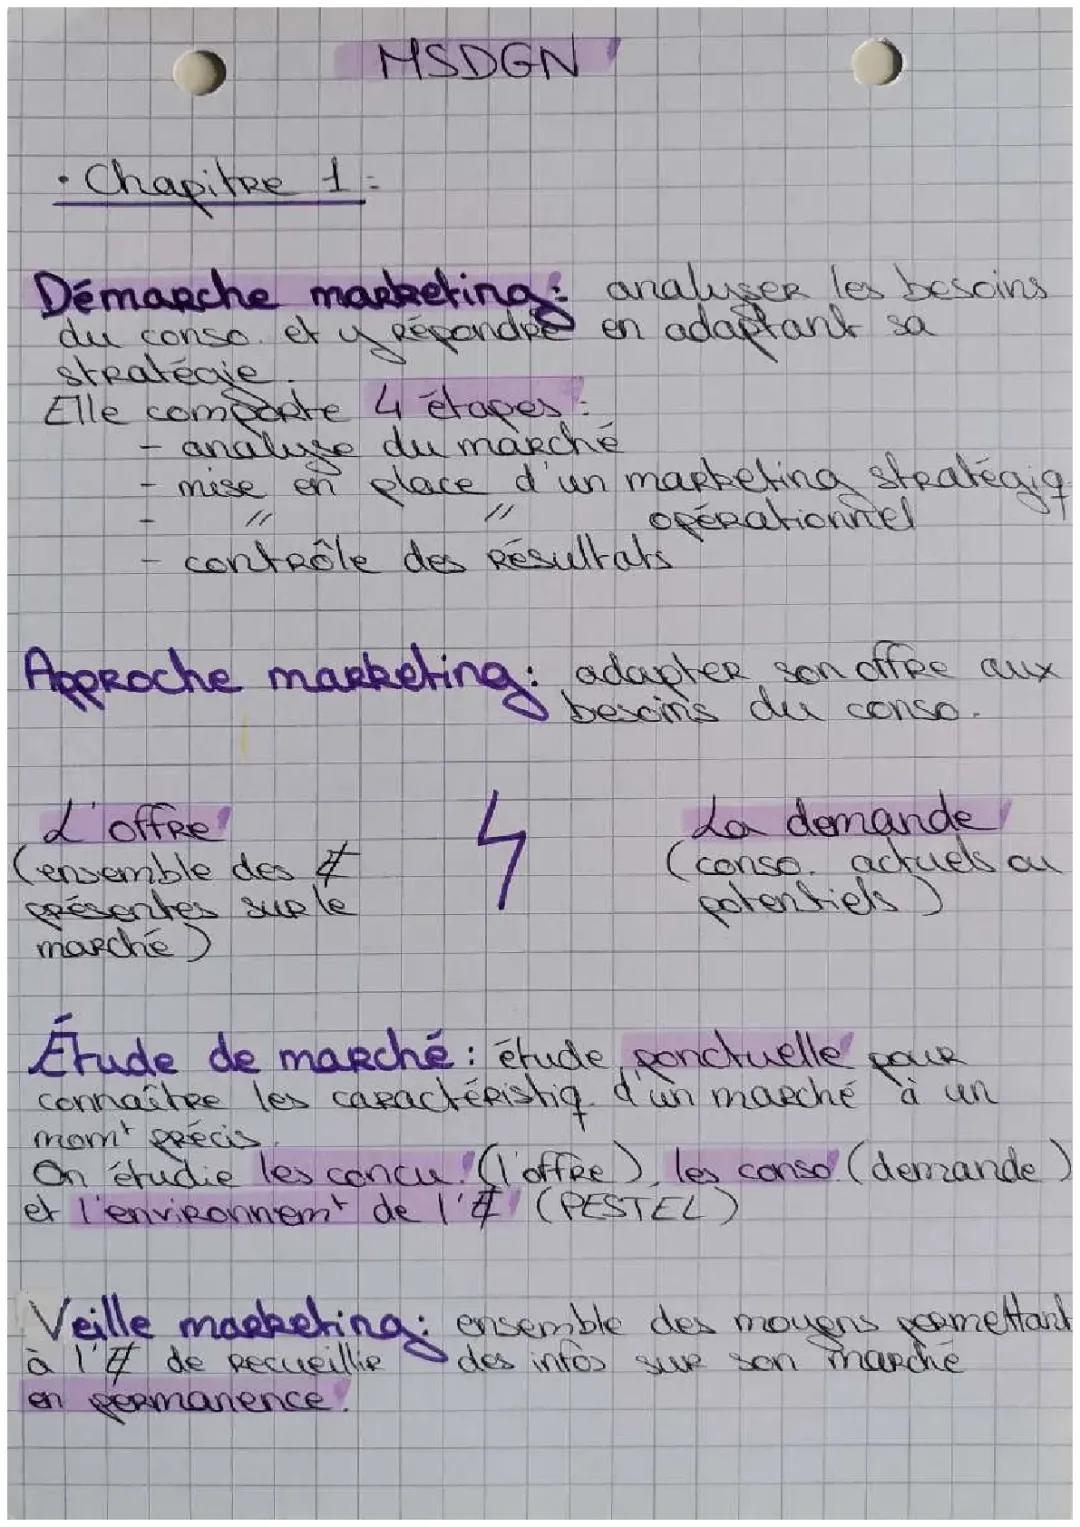 MSDGN
• Chapitre 1 :
Démarche marketing : analyser les besoins
du conso. et y répondre en adaptant sa
stratégie.
Elle comporte 4 étapes :
- analyse du marché
- mise en place d'un marketing stratégiq.
- // // opérationnel
- contrôle des résultats
Approche marketing : adapter son offre aux
besoins du conso.
L'offre
(ensemble des E
présentes sur le
marché)
La demande
(conso. actuels ou
potentiels)
Étude de marché : étude ponctuelle pour
connaître les caractéristiq. d'un marché à un
momt précis.
On étudie les concu. (l'offre), les conso. (demande)
et l'environnemt de l'E (PESTEL)
Veille marketing : ensemble des moyens permettant
à l'E de recueillir des infos sur son marché
en permanence.